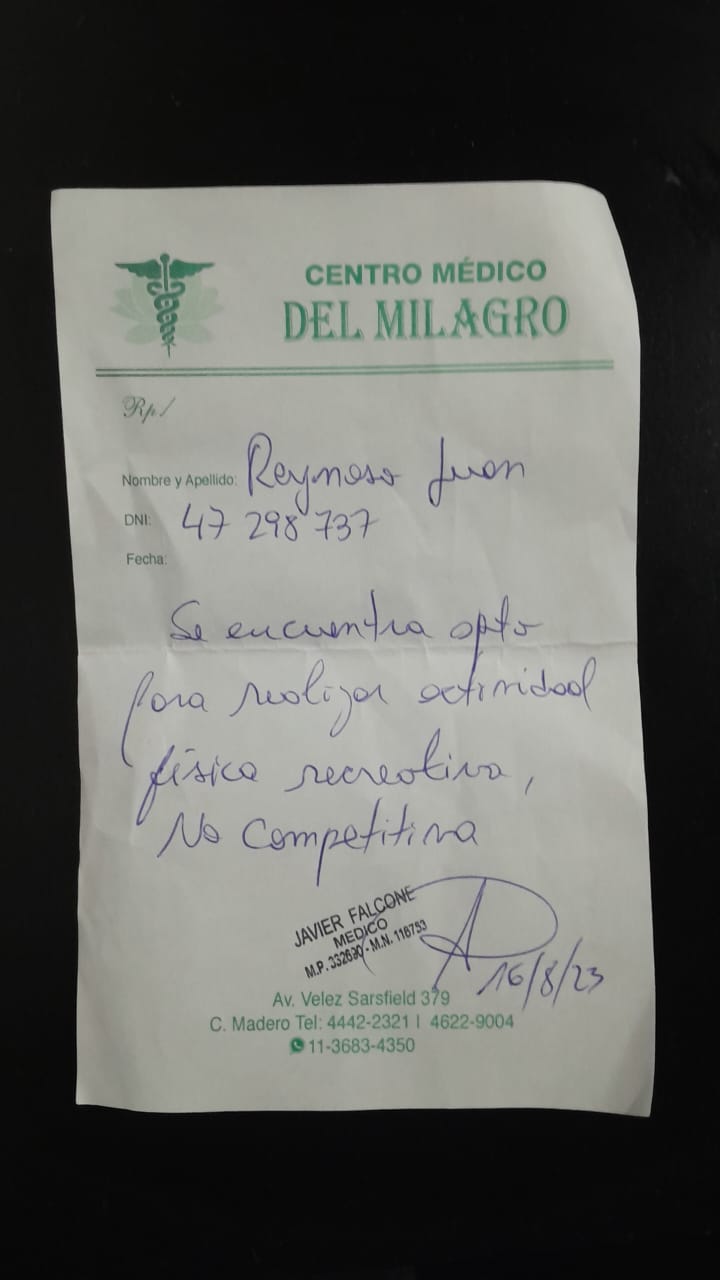 CENTRO MÉDICO
DEL MILAGRO
Rp/
Nombre y Apellido: Reynoso Juan
DNI: 47 298 737
Fecha:
Se encuentra apto
para realizar actividad
física recreativa,
No Competitiva
JAVIER FALCONE
MEDICO
M.P. 332690 - M.N. 118753
16/8/23
Av. Velez Sarsfield 379
C. Madero Tel: 4442-2321 | 4622-9004
11-3683-4350